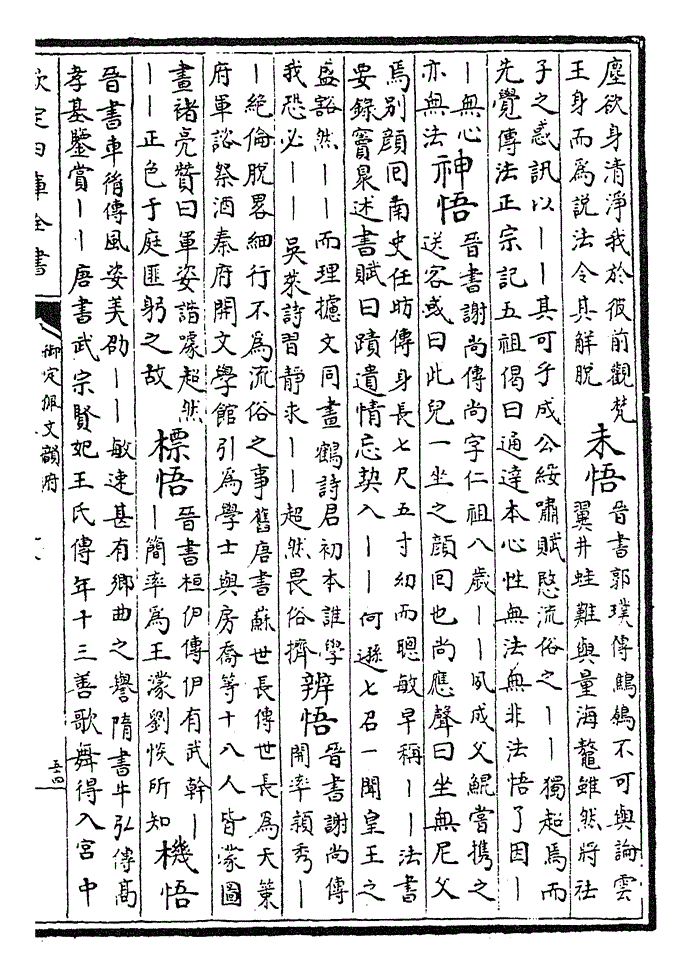 塵欲身清淨我於彼前觀梵
王身而為說法令其解脫
未悟
晉書郭璞傳鷦鷯不可與論雲
翼井蛙難與量海鼇雖然將祛
子之惑訊以丨丨其可乎成公綏嘯賦愍流俗之丨丨獨超焉而
先覺傳法正宗記五祖偈曰通達本心性無法無非法悟了因丨
丨無心
亦無法
神悟
晉書謝尚傳尚字仁祖八歲丨丨夙成父鯤嘗攜之
送客或曰此兒一坐之顏回也尚應聲曰坐無尼父
焉別顏回南史任昉傳身長七尺五寸幼而聰敏早稱丨丨法書
要錄竇臮述書賦曰蹟遺情忘契入丨丨何遜七召一聞皇王之
盛豁然丨丨而理據文同畫鶴詩君初本誰學
我恐必丨丨吳萊詩習靜求丨丨超然畏俗擠
辨悟
晉書謝尚傳
開率穎秀丨
丨絕倫脫畧細行不為流俗之事舊唐書蘇世長傳世長為天策
府軍諮祭酒秦府開文學館引為學士與房喬等十八人皆濛圖
畫褚亮贊曰軍姿諧噱超然
丨丨正色于庭匪躬之故
標悟
晉書桓伊傳伊有武幹丨
丨簡率為王濛劉惔所知
機悟
晉書車胤傳風姿美劭丨丨敏速甚有鄉曲之譽隋書牛弘傳高
孝基鑒賞丨丨唐書武宗賢妃王氏傳年十三善歌舞得入宮中
欽定四庫全書
御定佩文韻府
五四